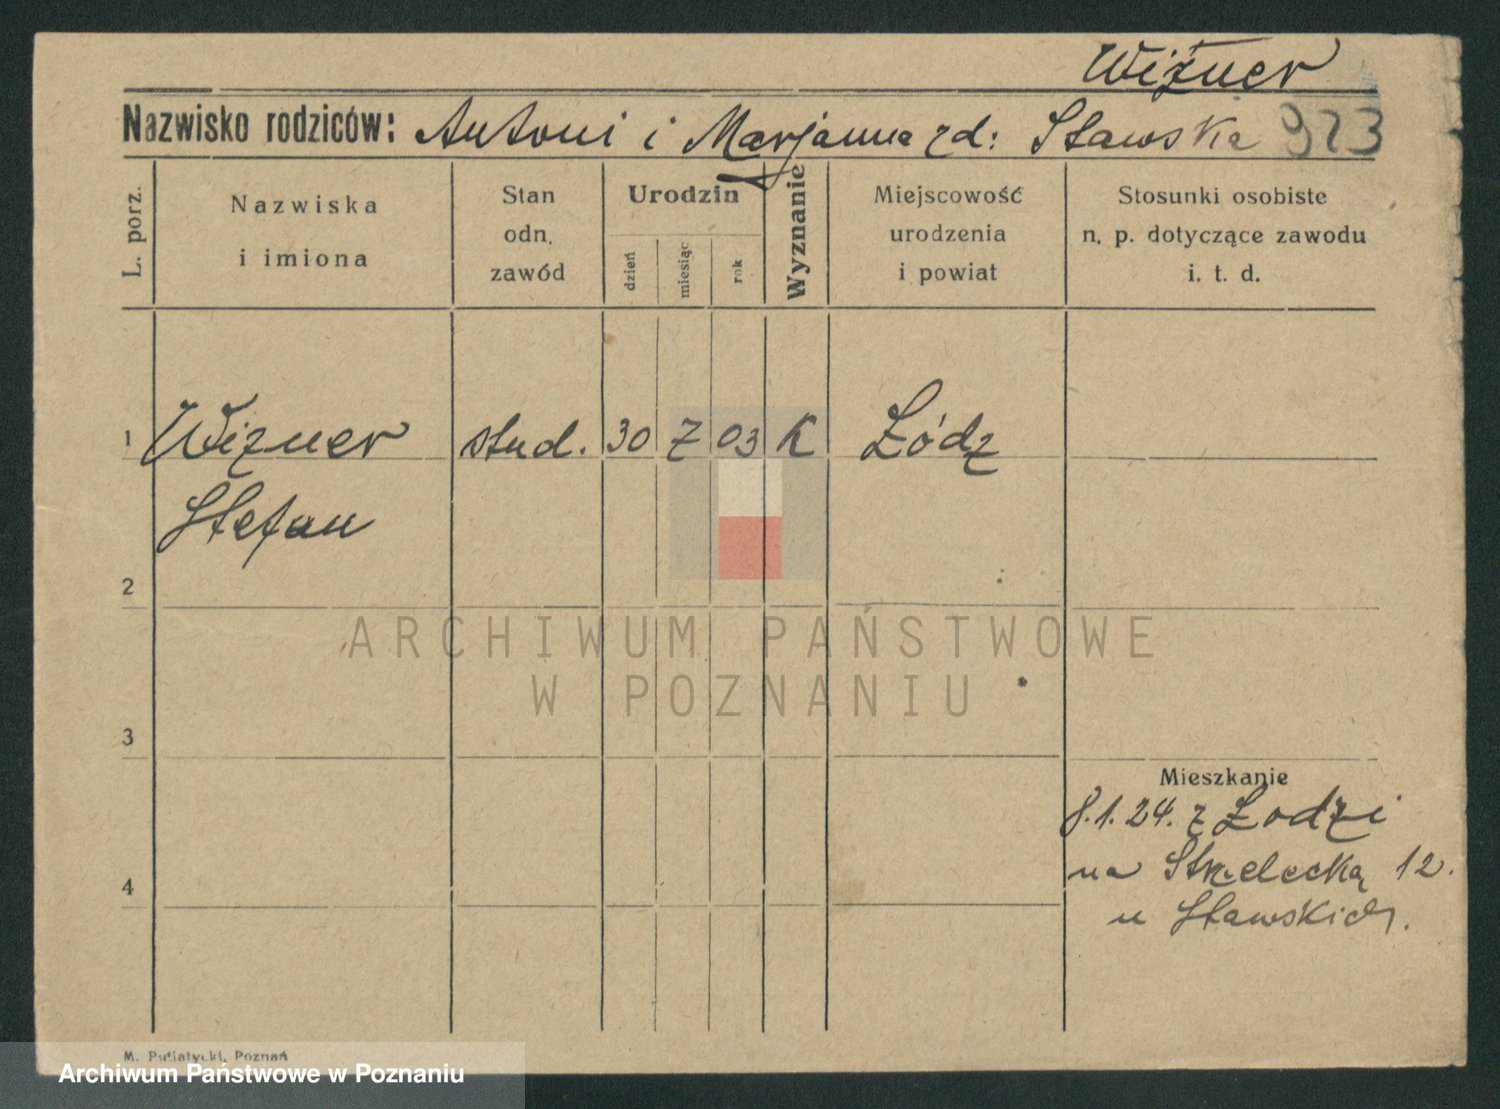 Wiżner
Nazwisko rodziców: Antoni i Marjanna zd: Stawska 923
L. porz.
Nazwiska
i imiona
Stan
odn.
zawód
Urodzin
dzień
miesiąc
rok
Wyznanie
Miejscowość
urodzenia
i powiat
Stosunki osobiste
n. p. dotyczące zawodu
i. t. d.
1 Wizner stud. 30 7 03 K Łódz
Stefan
2
ARCHIWUM PAŃSTWOWE
W POZNANIU
3
Mieszkanie
8.1.24. z Łodzi
4
na Strzelecką 12.
u Stawskich.
M. Putiatycki, Poznań
Archiwum Państwowe w Poznaniu